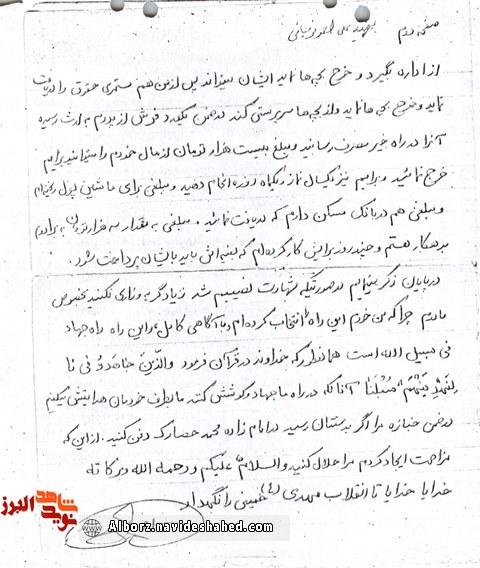 صفحه دوم شهید علی احمد
از اداره بگیرد و خرج بچه ها نماید ایشان میتواند پس از من هم مستمری حقوق را دریافت
نماید و خرج بچه ها نماید و از بچه ها سرپرستی کند در ضمن یکعدد فرش از پدرم به ارث رسیده
آنرا در راه خیر مصرف رسانید و مبلغ بیست هزار تومان از مال خودم را برایم
خرج نمائید و برایم نیز یکسال نماز و یکماه روزه انجام دهید و مبلغی برای ماشین
و مبلغی هم در بانک مسکن دارم که دریافت نمائید . مبلغی به مقدار سه هزار تومان به برادرم
بدهکار هستم و چند روز برایش کار کرده ام که بقیه اش باید بایشان پرداخت شود .
در پایان ذکر مینمایم در صورتیکه شهادت نصیبم شد زیاد گریه و زاری نکنید بخصوص
مادرم چرا که من خودم این راه را انتخاب کرده ام و با آگاهی کامل، و این راه راه جهاد
فی سبیل الله است همانطور که خداوند در قرآن فرمود والذین جاهدوا فی نا
لنهدینهم سبلنا آنانکه در راه ما جهاد و کوشش کنند ما بطرف خودمان هدایتش میکنیم
در ضمن جنازه مرا اگر بدستتان رسید در امام زاده محمد حصارک دفن کنید . از این که
مزاحمت ایجاد کردم مرا حلال کنید والسلام علیکم و رحمه الله و برکاته
خدایا خدایا تا انقلاب مهدی (ع) خمینی را نگهدار
نوید شاهد البرز
Alborz.navideshahed.com